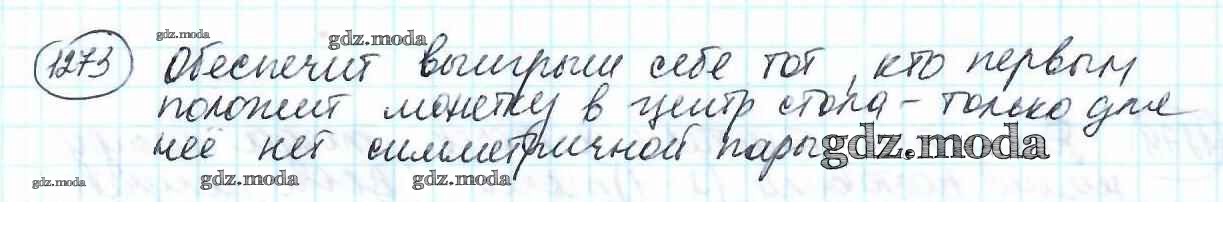 gdz.moda
gdz.moda
1273 Обеспечит выигрыш себе тот, кто первым
положит монетку в центр стола – только для
неё нет симметричной пары
gdz.moda
gdz.moda
gdz.moda
gdz.moda